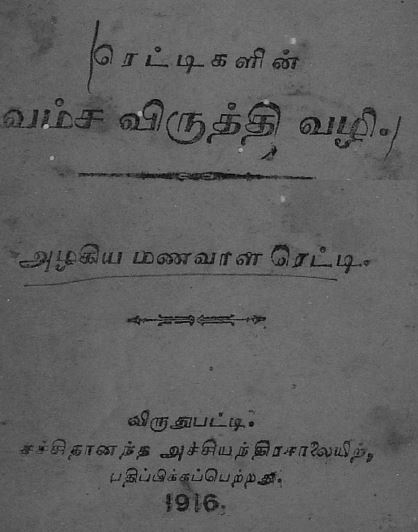 ரெட்டிகளின்
வம்ச விருத்தி வழி.
அழகிய மணவாள ரெட்டி.
விருதுபட்டி.
சச்சிதானந்த அச்சியந்திரசாலையிற்,
பதிப்பிக்கப்பெற்றது.
1916.